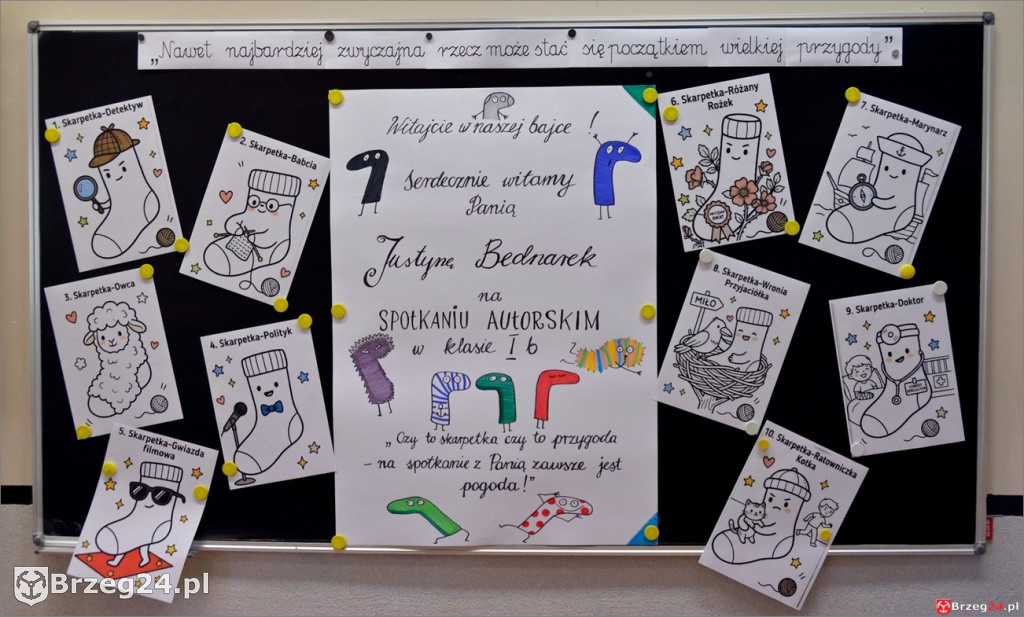 „Nawet najbardziej zwyczajna rzecz może stać się początkiem wielkiej przygody”
1. Skarpetka-Detektyw
2. Skarpetka-Babcia
3. Skarpetka-Owca
4. Skarpetka-Polityk
5. Skarpetka-Gwiazda
filmowa
Witajcie w naszej bajce !
Serdecznie witamy
Panią
Justynę Bednarek
na
SPOTKANIU AUTORSKIM
w klasie I b
„Czy to skarpetka czy to przygoda
– na spotkanie z Panią zawsze jest
pogoda!”
6. Skarpetka-Różany
Rożek
7. Skarpetka-Marynarz
8. Skarpetka-Wronia
Przyjaciółka
MIŁO
9. Skarpetka-Doktor
10. Skarpetka-Ratowniczka
Kotka
Brzeg24.pl
Brzeg24.pl